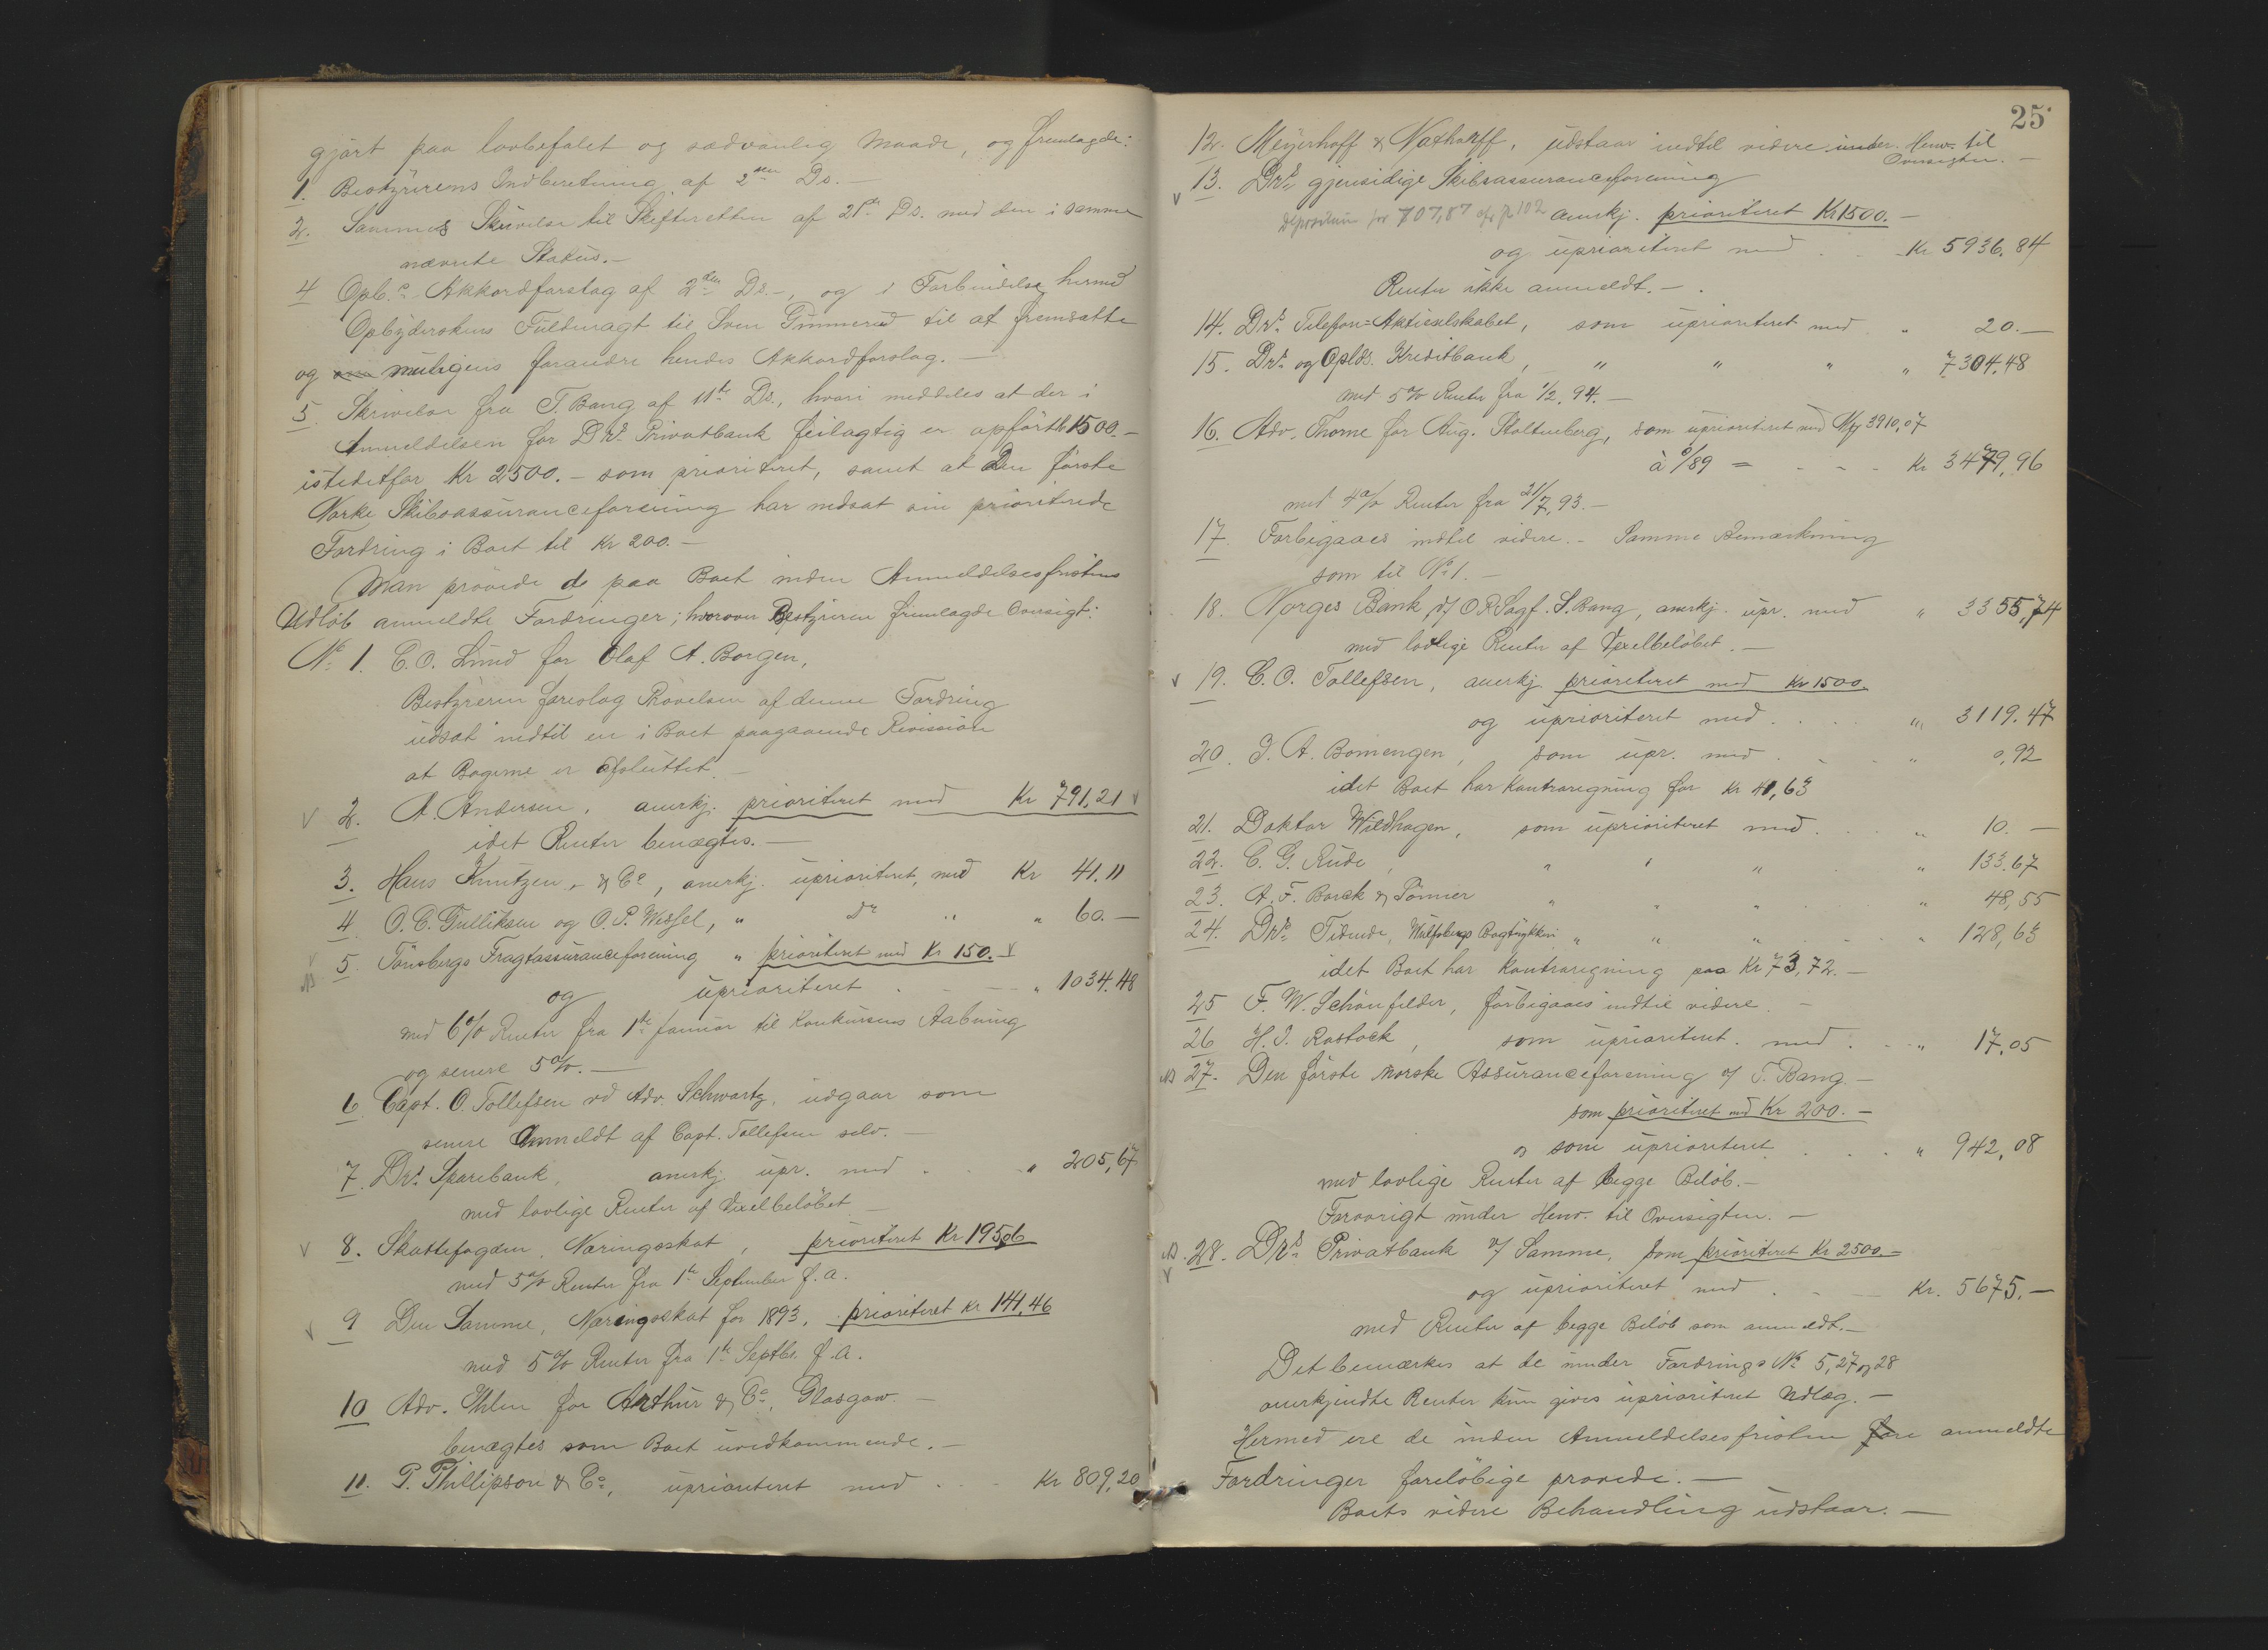 gjort paa lovbefalet og sædvanlig Maade, og fremlagde:
1. Bestyrerens Indberetning af 2den Ds. –
2. Sammes Skrivelse til Skifteretten af 21de Ds. med den i samme
nævnte Status. –
4 Opb.s Akkordforslag af 2den Ds. –, og i Forbindelse hermed
Opbyderskens Fuldmagt til Sven Gunnerud til at fremsætte
og muligens forandre hendes Akkordforslag. –
5 Skrivelse fra T. Bang af 11te Ds., hvori meddeles at der i
Anmeldelsen for Drs. Privatbank feilagtig er opført Kr 1500. –
istedetfor Kr 2500. – som prioriteret, samt at Den første
Norke Skibsassuranceforening har nedsat sin prioriterede
Fordring i Boet til Kr 200. –
Man prøvede de paa Boet inden Anmeldelsesfristens
Udløb anmeldte Fordringer; hvorover Bestyreren fremlagde Oversigt:
No. 1. C. O. Lund for Olaf A. Borgen,
Bestyreren foreslog Prøvelsen af denne Fordring
udsat indtil en i Boet paagaaende Revission
at Bøgerne er afsluttet. –
2. A. Andersen, anerkj. prioriteret med Kr 791,21
idet Renter benægtes. –
3. Hans Knutzen & Co, anerkj. uprioriteret, med Kr 41.11
4 O. C. Gulliksen og O. P. Wessel, " Do " " 60. –
5 Tönsbergs Fragtassuranceforening " prioriteret med Kr 150. –
NB og uprioriteret . – – " 1034.48
med 6% Renter fra 1ste Januar til Konkursens Aabning
og senere 5%. –
6 Capt. O. Tollefsen vd Adv. Schwartz, udgaar som
senere Anmeldt af Capt. Tollefsen selv. –
7. Drs. Sparebank, anerkj upr. med . . " 205,67
med lovlige Renter af Vexelbeløbet –
8. Skattefogden, Næringsskat, prioriteret Kr 195,06
med 5% Renter fra 1ste September f. a.
9 Den Samme, Næringsskat for 1893, prioriteret Kr 141,46
med 5% Renter fra 1ste Septbr. f. a.
10 Adv. Ihlen for Arthur & Co, Glasgow. –
benægtes som Boet uvedkommende. –
11. P. Phillipson & Co, uprioriteret med . . . Kr 809,20
25
12. Meyerhoff & Nathorff, udstaar indtil videre under Henv. til
Oversigten. –
13. Drs. gjensidige Skibsassuranceforening
Depositum for 707,87 cfr p 102 anerkj. prioriteret Kr 1500. –
og uprioriteret med . . Kr 5936.84
Renter ikke anmeldt. –
14. Drs. Telefon=Aktieselskabet, som uprioriteret med " 20. –
15. Drs. og Oplds. Kreditbank, " " " " 7304.48
med 5% Renter fra 1/2. 94. –
16. Adv. Thorne for Aug. Stoltenberg, som uprioriteret med Mk 3910,07
à /89 = – – – Kr 3479,96
med 4% Renter fra 21/7. 93. –
17. Forbigaaes indtil videre. – Samme Bemærkning
som til No 1. –
18. Norges Bank, v/ O.R.Sagf. S. Bang, anerkj. upr. med " 3355,74
med lovlige Renter af Vexelbeløbet. –
19. C. O. Tollefsen, anerkj. prioriteret med Kr 1500.
og uprioriteret med . . . " 3119.47
20. J. A. Bomengen, som upr. med . . . " 0,92
idet Boet har Kontraregning for Kr 40,63
21. Doktor Wildhagen, som uprioriteret med . . " 10. –
22. C. G. Rude, " " " . " 133.67
23. A. F. Banck & Sönner " " " . " 48,55
24. Drs. Tidende, Wulfsbergs Bogtrykkeri " " " . . " 128,63
idet Boet har Kontraregning paa Kr 73,72. –
25 F. W. Schönfelder, forbigaaes indtil videre. –
26 H. J. Rostock, som uprioriteret. med . – " 17.05
NB 27. Den første Norske Assuranceforening v/ T. Bang. –
som prioriteret med Kr 200. –
og som uprioriteret . . . " 942,08
med lovlige Renter af begge Beløb. –
Forøvrigt under Henv. til Oversigten. –
NB. 28. Drs. Privatbank v/ Samme, som prioriteret Kr 2500. –
og uprioriteret med . – – Kr. 5675. –
med Renter af begge Beløb som anmeldt. –
Det bemærkes at de under Fordrings No 5, 27 og 28
anerkjendte Renter kun gives uprioriteret Udlæg. –
Hermed ere de inden Anmeldelsesfristen anmeldte
Fordringer foreløbige prøvede. –
Boets videre Behandling udstaar. –